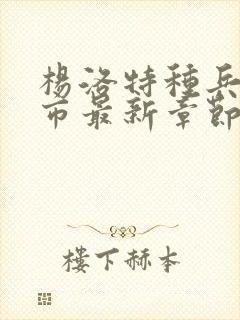 楊洛特種兵
市最新章節
樓下赫本